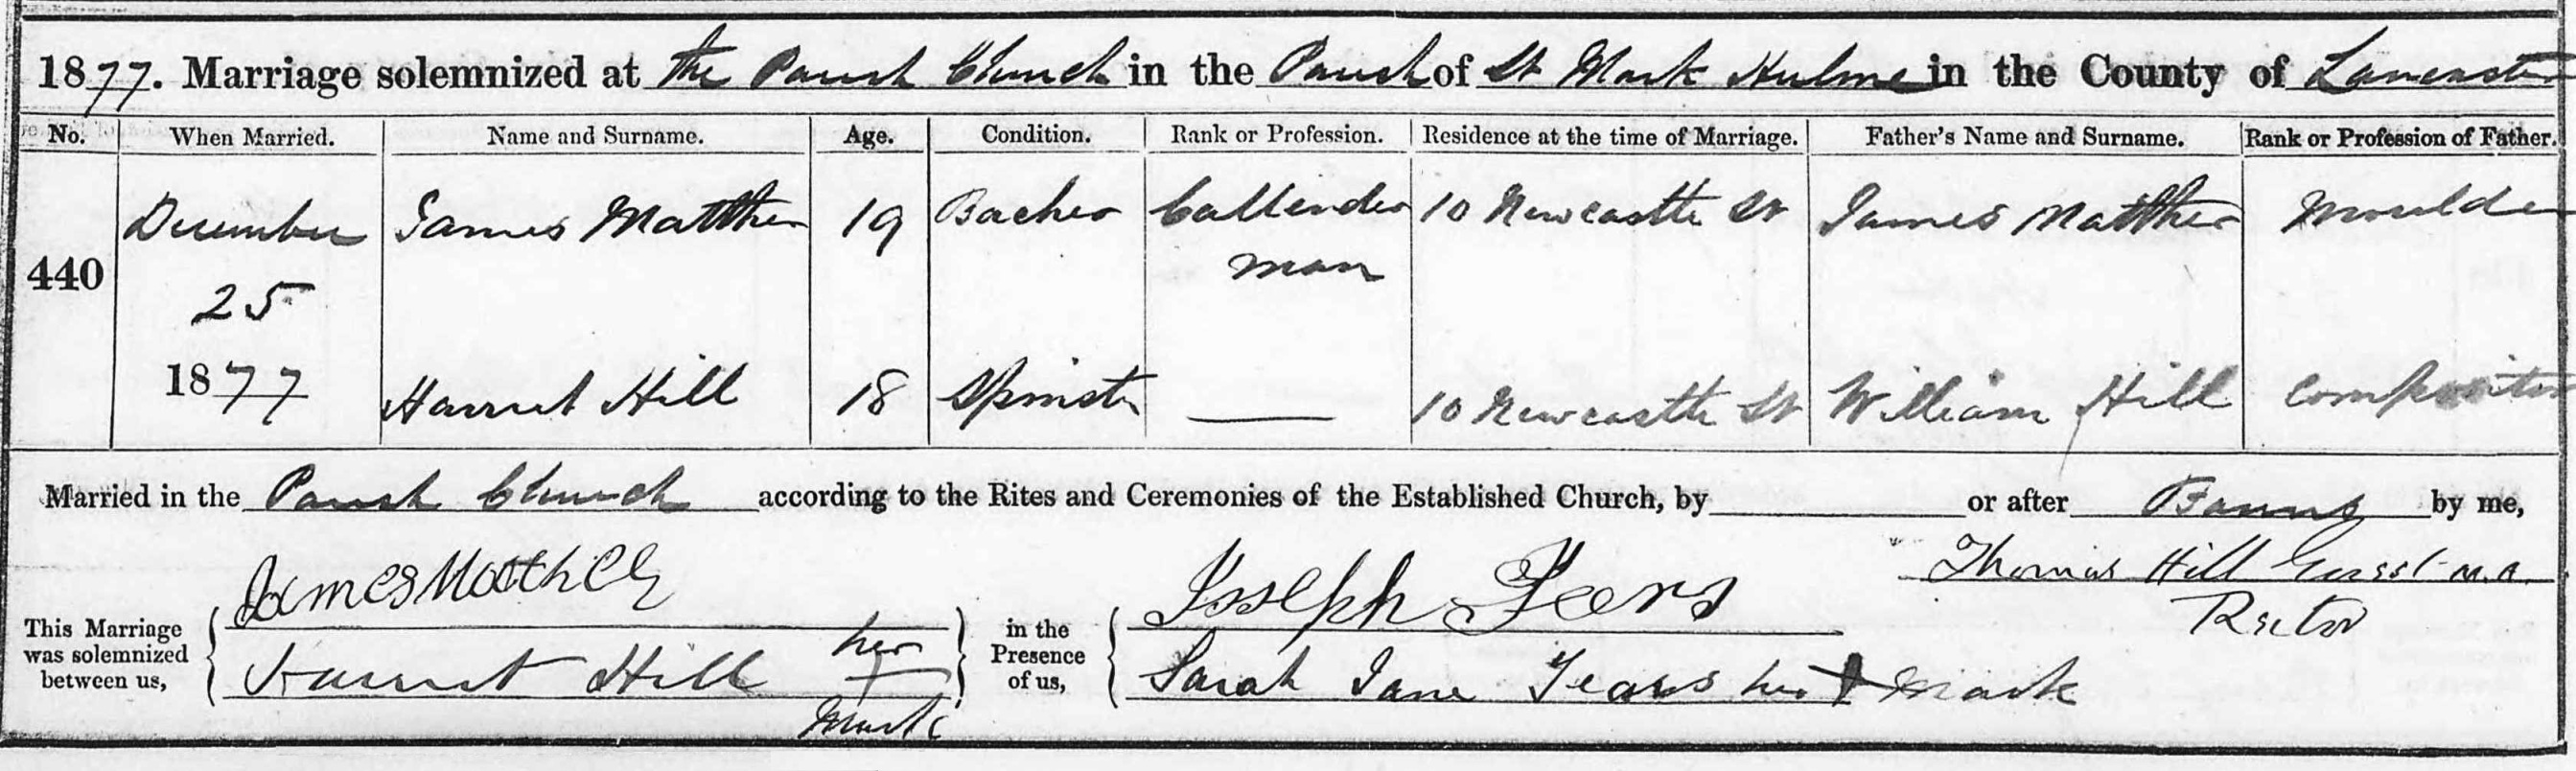 1877. Marriage solemnized at the Parish Church in the Parish of St Mark Hulme in the County of Lancaster
No. When Married. Name and Surname. Age. Condition. Rank or Profession. Residence at the time of Marriage. Father's Name and Surname. Rank or Profession of Father.
440
December 25 1877
James Matther 19 Bachelor Callender man 10 Newcastle St James Matther Moulder
Harriet Hill 18 Spinster 10 Newcastle St William Hill Compositor
Married in the Parish Church according to the Rites and Ceremonies of the Established Church, by or after Banns by me,
Thomas Hill M.A.
Rector
This Marriage was solemnized between us,
James
Harriet Hill her + Mark
in the Presence of us,
Joseph
Sarah Jane her + Mark